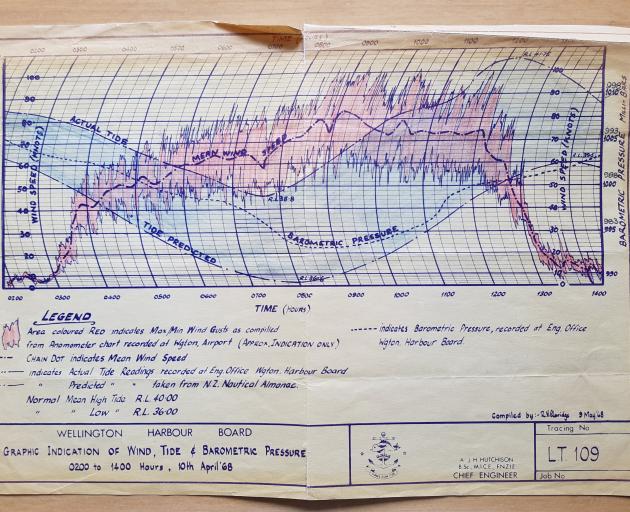 TIME (HOURS)
0200 0300 0400 0500 0600 0700 0800 0900 1000 1100 1200 1300 1400
R.L.41·75
100
90
80
70
60
50
40
30
20
10
0
WIND SPEED (KNOTS)
ACTUAL TIDE
MEAN WIND SPEED
R.L.38·8
TIDE PREDICTED
BAROMETRIC PRESSURE
WIND SPEED (KNOTS)
1010
1005
1000
995
990
BAROMETRIC PRESSURE MILLIBARS
0200 0300 0400 0500 0600 0700 0800 0900 1000 1100 1200 1300 1400
TIME (HOURS)
LEGEND
Area coloured RED indicates Max/Min Wind Gusts as compiled
from Anemometer chart recorded at Wgton. Airport (APPROX. INDICATION ONLY)
CHAIN DOT indicates Mean Wind Speed
indicates Actual Tide Readings recorded at Eng. Office Wgton. Harbour Board
" Predicted " " taken from N.Z. Nautical Almanac.
Normal Mean High Tide R.L. 40·00
" " Low " R.L. 36·00
indicates Barometric Pressure, recorded at Eng. Office
Wgton. Harbour Board.
Compiled by:- 9 May '68
WELLINGTON HARBOUR BOARD
GRAPHIC INDICATION OF WIND, TIDE & BAROMETRIC PRESSURE
0200 to 1400 Hours, 10th April '68
A J H HUTCHISON
B.Sc., M.I.C.E., F.N.Z.I.E.
CHIEF ENGINEER
Tracing No
LT 109
Job No